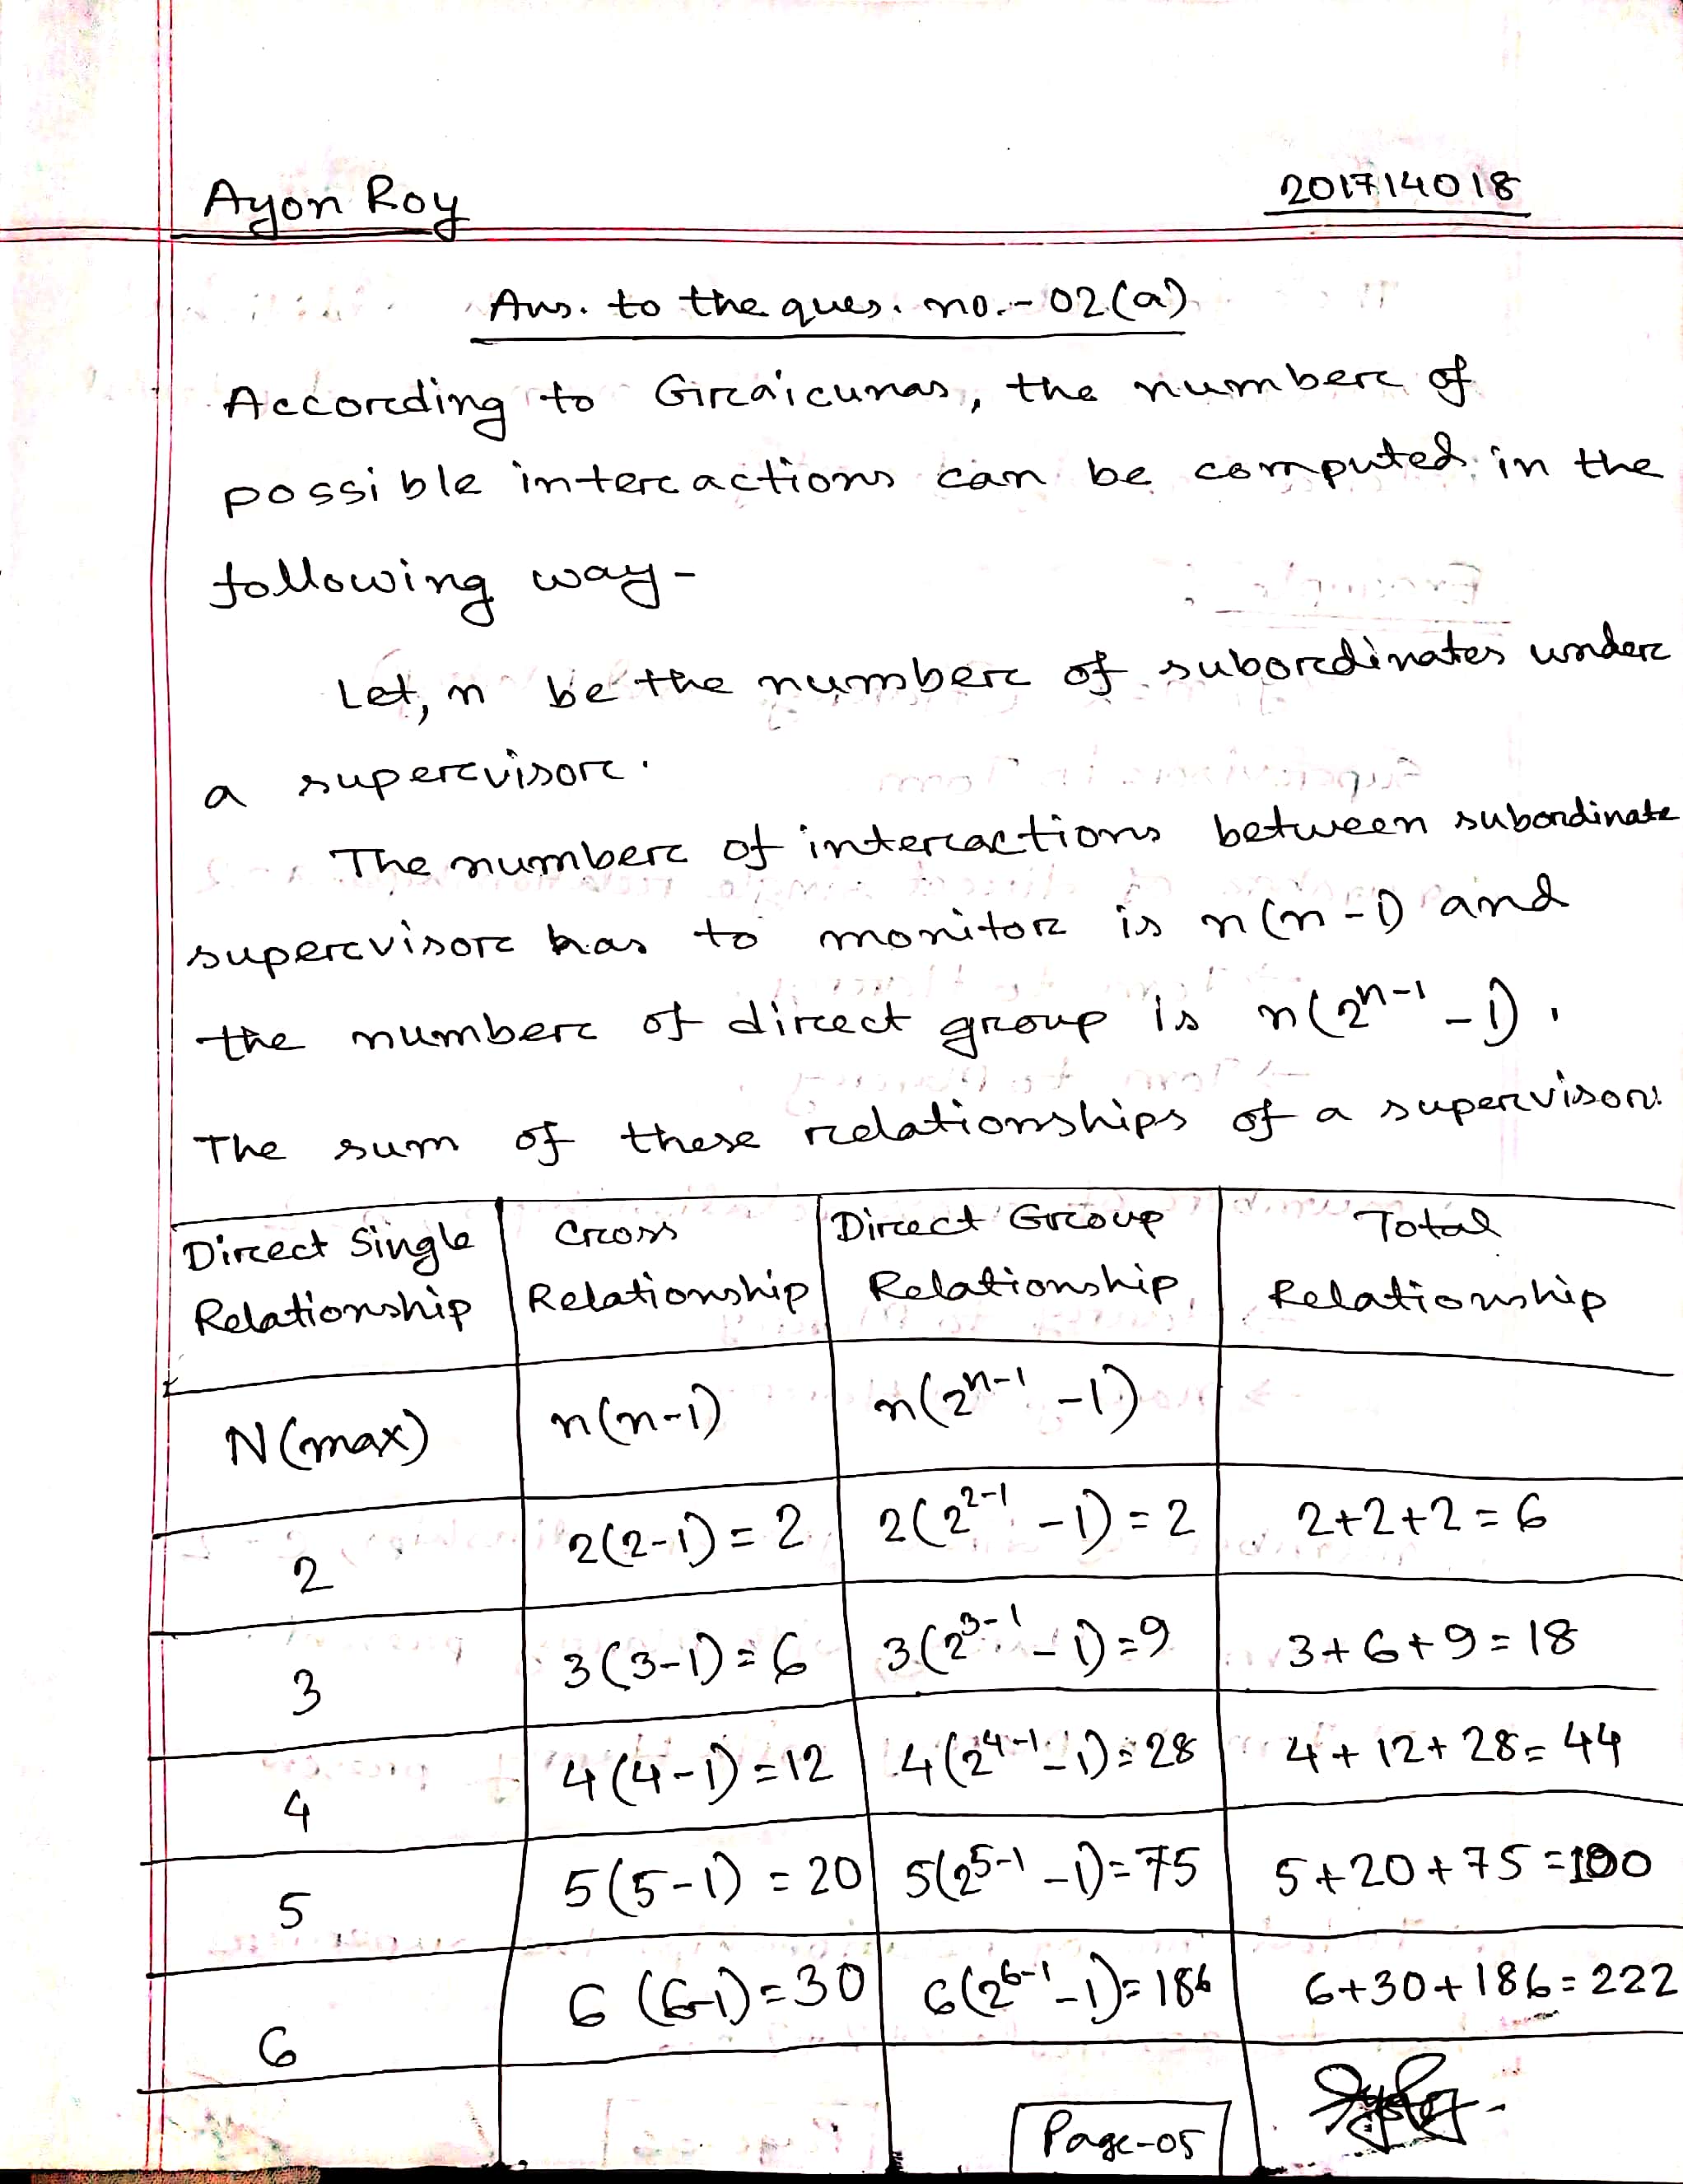 Ayon Roy
201714018
Ans. to the ques. no.- 02(a)
According to Graicunas, the number of
possible interactions can be computed in the
following way-
Let, n be the number of subordinates under
a supervisor.
The number of interactions between subordinate
supervisor has to monitor is n(n-1) and
the number of direct group is n(2ⁿ⁻¹-1).
The sum of these relationships of a supervisor.
Direct Single Relationship | Cross Relationship | Direct Group Relationship | Total Relationship
N(max) | n(n-1) | n(2ⁿ⁻¹-1)
2 | 2(2-1)=2 | 2(2²⁻¹-1)=2 | 2+2+2=6
3 | 3(3-1)=6 | 3(2³⁻¹-1)=9 | 3+6+9=18
4 | 4(4-1)=12 | 4(2⁴⁻¹-1)=28 | 4+12+28=44
5 | 5(5-1)=20 | 5(2⁵⁻¹-1)=75 | 5+20+75=100
6 | 6(6-1)=30 | 6(2⁶⁻¹-1)=186 | 6+30+186=222
Page-05